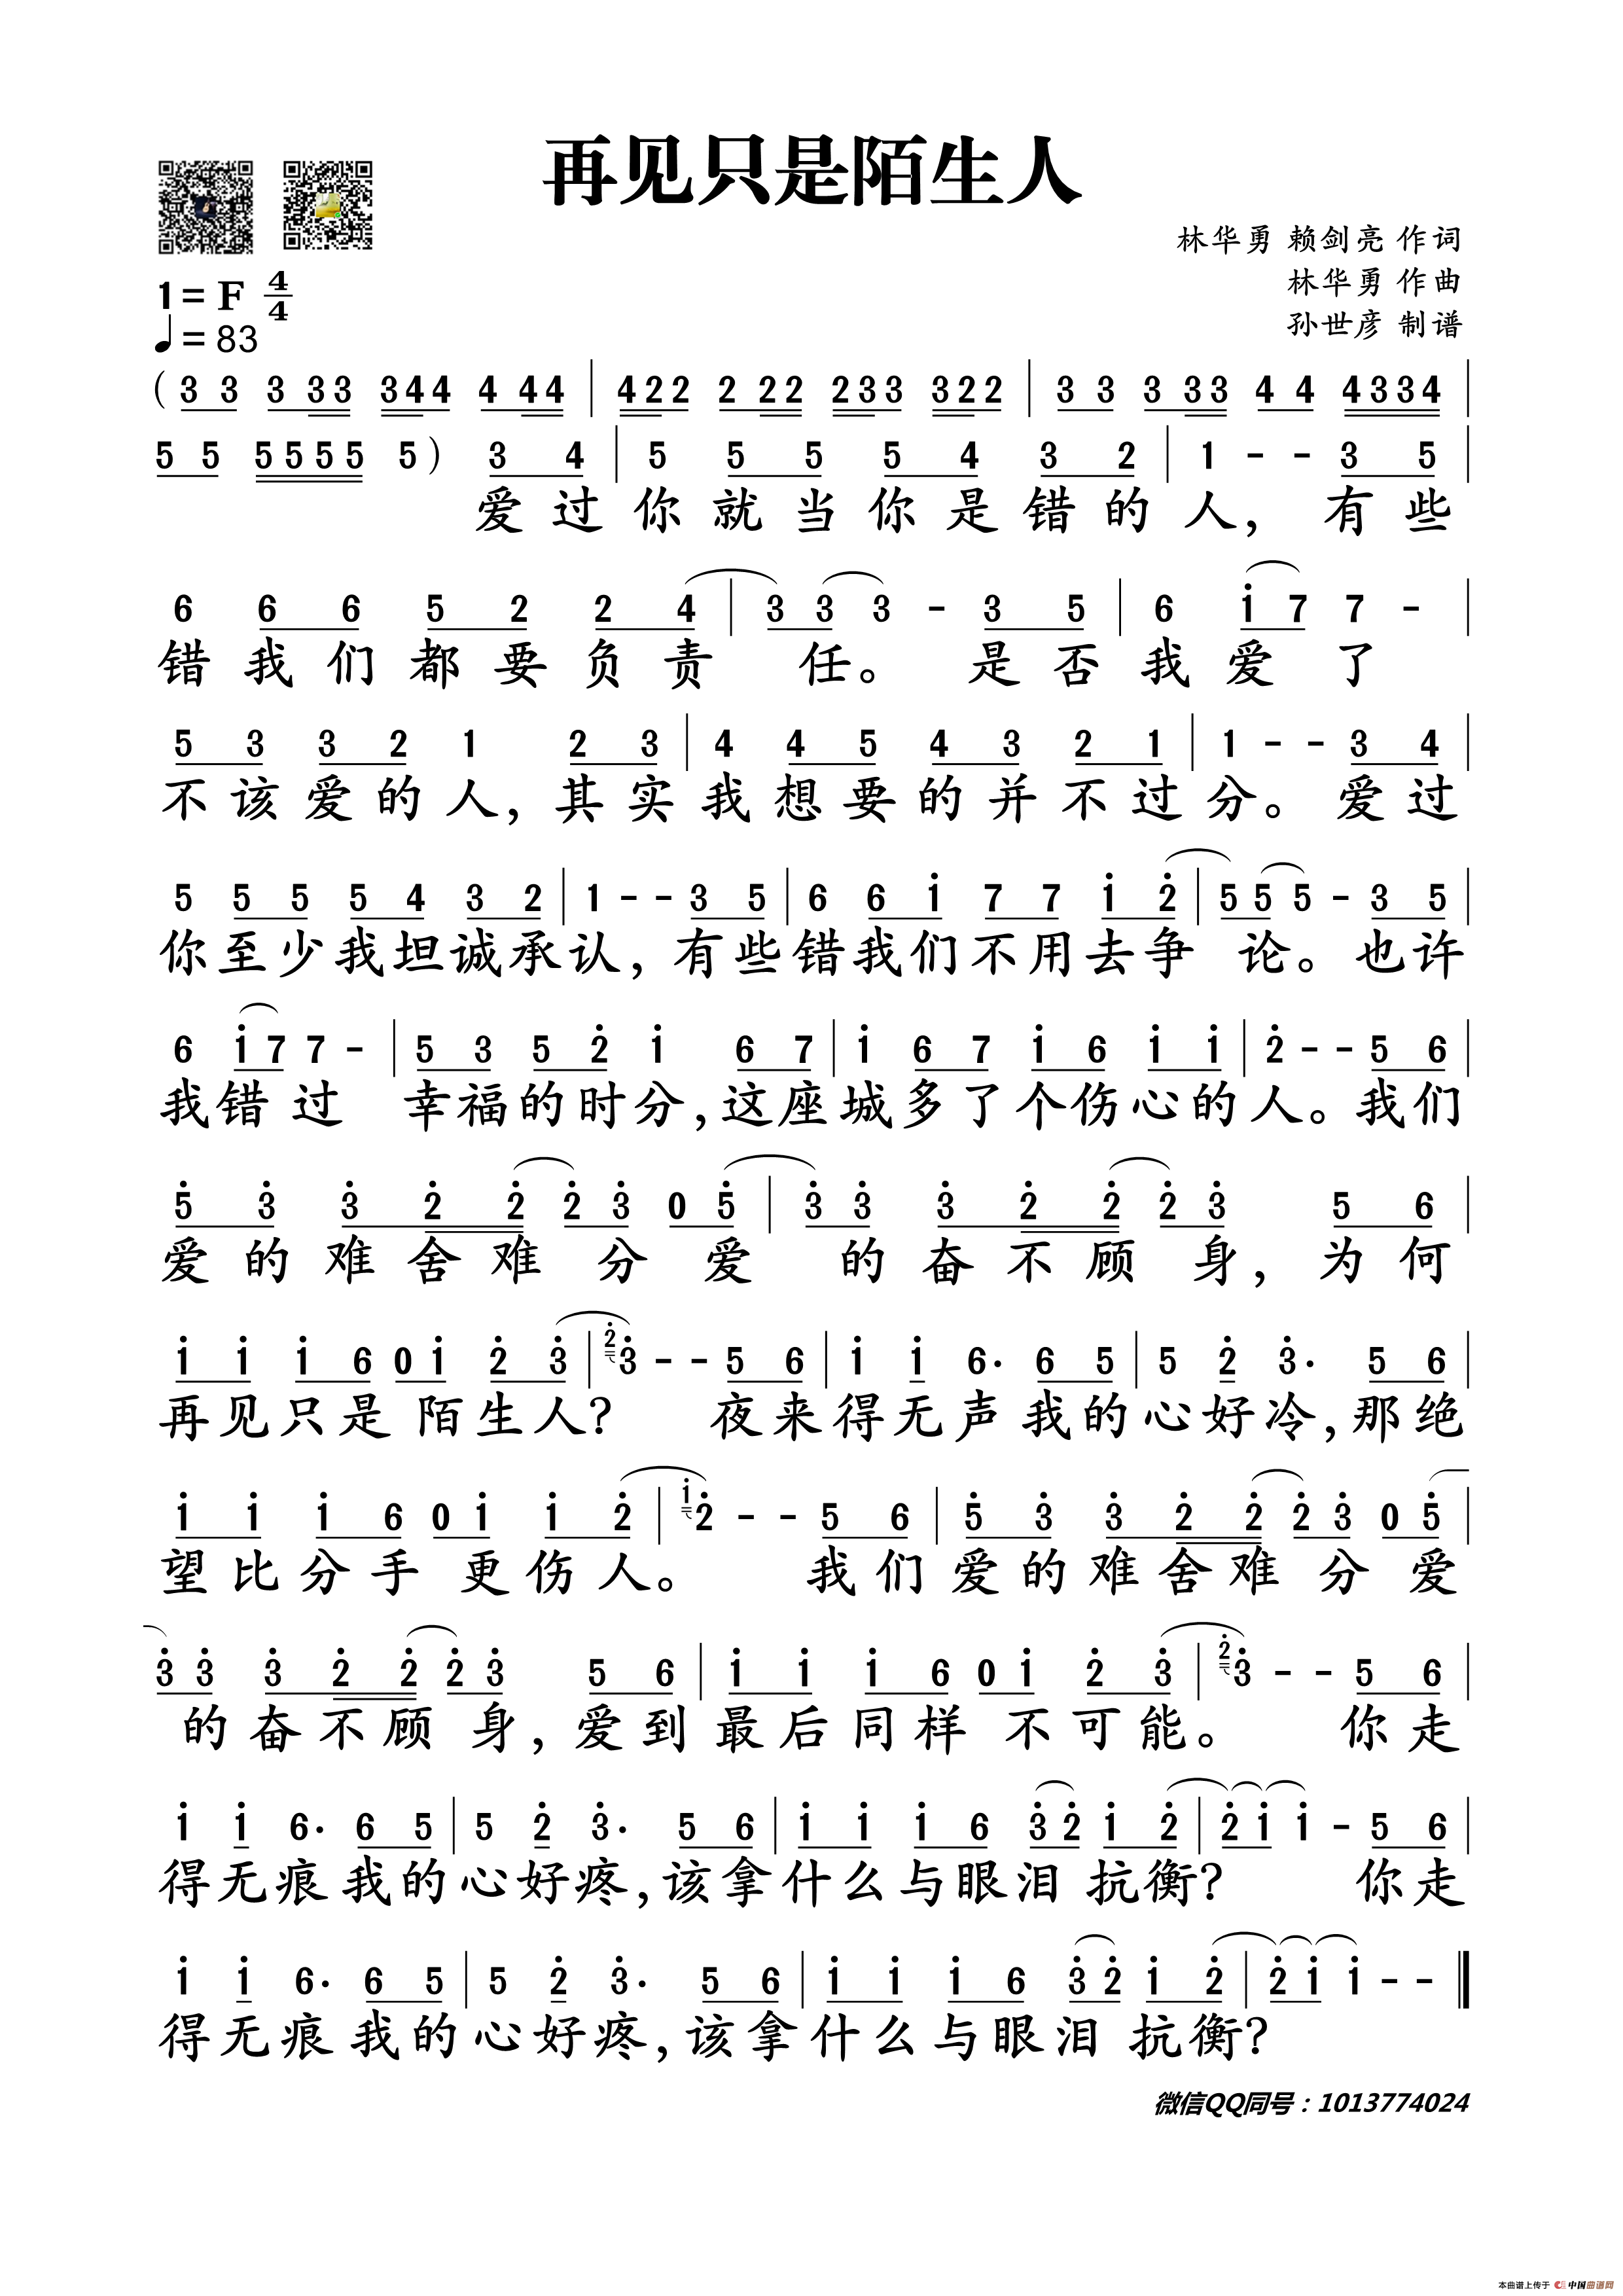 再见只是陌生人
林华勇 赖剑亮 作词
林华勇 作曲
孙世彦 制谱
1= F 4/4
♩= 83
( 3 3 3 3 3 3 4 4 4 4 4 | 4 2 2 2 2 2 2 3 3 3 2 2 | 3 3 3 3 3 4 4 4 3 3 4 |
5 5 5 5 5 5 5 ) 3 4 | 5 5 5 5 4 3 2 | 1 - - 3 5 |
爱过你就当你是错的人，有些
6 6 6 5 2 2 4 | 3 3 3 - 3 5 | 6 i 7 7 - |
错我们都要负责 任。 是否我爱了
5 3 3 2 1 2 3 | 4 4 5 4 3 2 1 | 1 - - 3 4 |
不该爱的人，其实我想要的并不过分。爱过
5 5 5 5 4 3 2 | 1 - - 3 5 | 6 6 i 7 7 i 2̇ | 5 5 5 - 3 5 |
你至少我坦诚承认，有些错我们不用去争 论。也许
6 i 7 7 - | 5 3 5 2̇ i 6 7 | i 6 7 i 6 i i | 2̇ - - 5 6 |
我错过 幸福的时分,这座城多了个伤心的人。我们
5̇ 3̇ 3̇ 2̇ 2̇ 2̇ 3̇ 0 5̇ | 3̇ 3̇ 3̇ 2̇ 2̇ 2̇ 3̇ 5 6 |
爱的难舍难 分 爱 的奋不顾 身，为何
i i i 6 0 i 2̇ 3̇ | 2̇ 3̇ - - 5 6 | i i 6· 6 5 | 5 2̇ 3̇· 5 6 |
再见只是 陌生人? 夜来得无声我的心好冷,那绝
i i i 6 0 i i 2̇ | i 2̇ - - 5 6 | 5̇ 3̇ 3̇ 2̇ 2̇ 2̇ 3̇ 0 5̇ |
望比分手 更伤人。 我们爱的难舍难 分 爱
3̇ 3̇ 3̇ 2̇ 2̇ 2̇ 3̇ 5 6 | i i i 6 0 i 2̇ 3̇ | 2̇ 3̇ - - 5 6 |
的奋不顾 身，爱到最后同样 不可能。 你走
i i 6· 6 5 | 5 2̇ 3̇· 5 6 | i i i 6 3̇ 2̇ i 2̇ | 2̇ i i - 5 6 |
得无痕我的心好疼,该拿什么与眼泪 抗衡? 你走
i i 6· 6 5 | 5 2̇ 3̇· 5 6 | i i i 6 3̇ 2̇ i 2̇ | 2̇ i i - - ‖
得无痕我的心好疼,该拿什么与眼泪 抗衡?
微信QQ同号：1013774024
本曲谱上传于 中国曲谱网